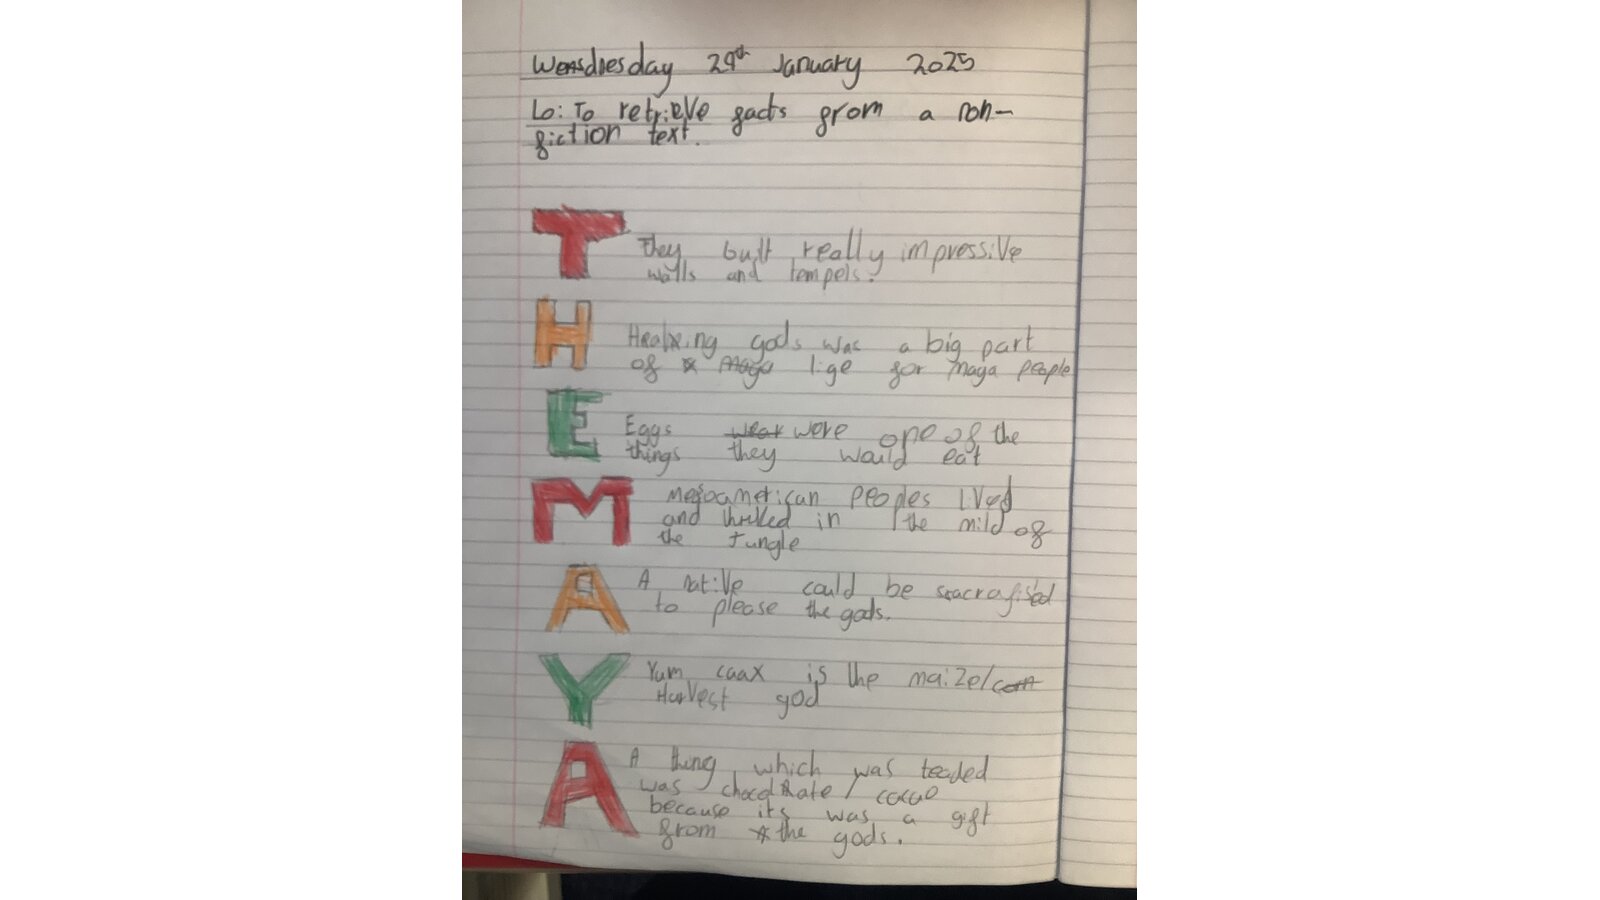 Wensdnesday 29th January 2025
Lo: To retrieve facts from a non-
fiction text.
T They built really impressive
walls and tempels.
H Healxing gods was a big part
of life for maya people
E Eggs wear were one of the
things they would eat
M mesoamerican peoples lived
and in the mild of
the Jungle
A A native could be sacrafised
to please the gods.
Y Yum caax is the maize/corn
Harvest god
A A thing which was teaded
was chocolate / cacao
because its was a gift
from the gods.